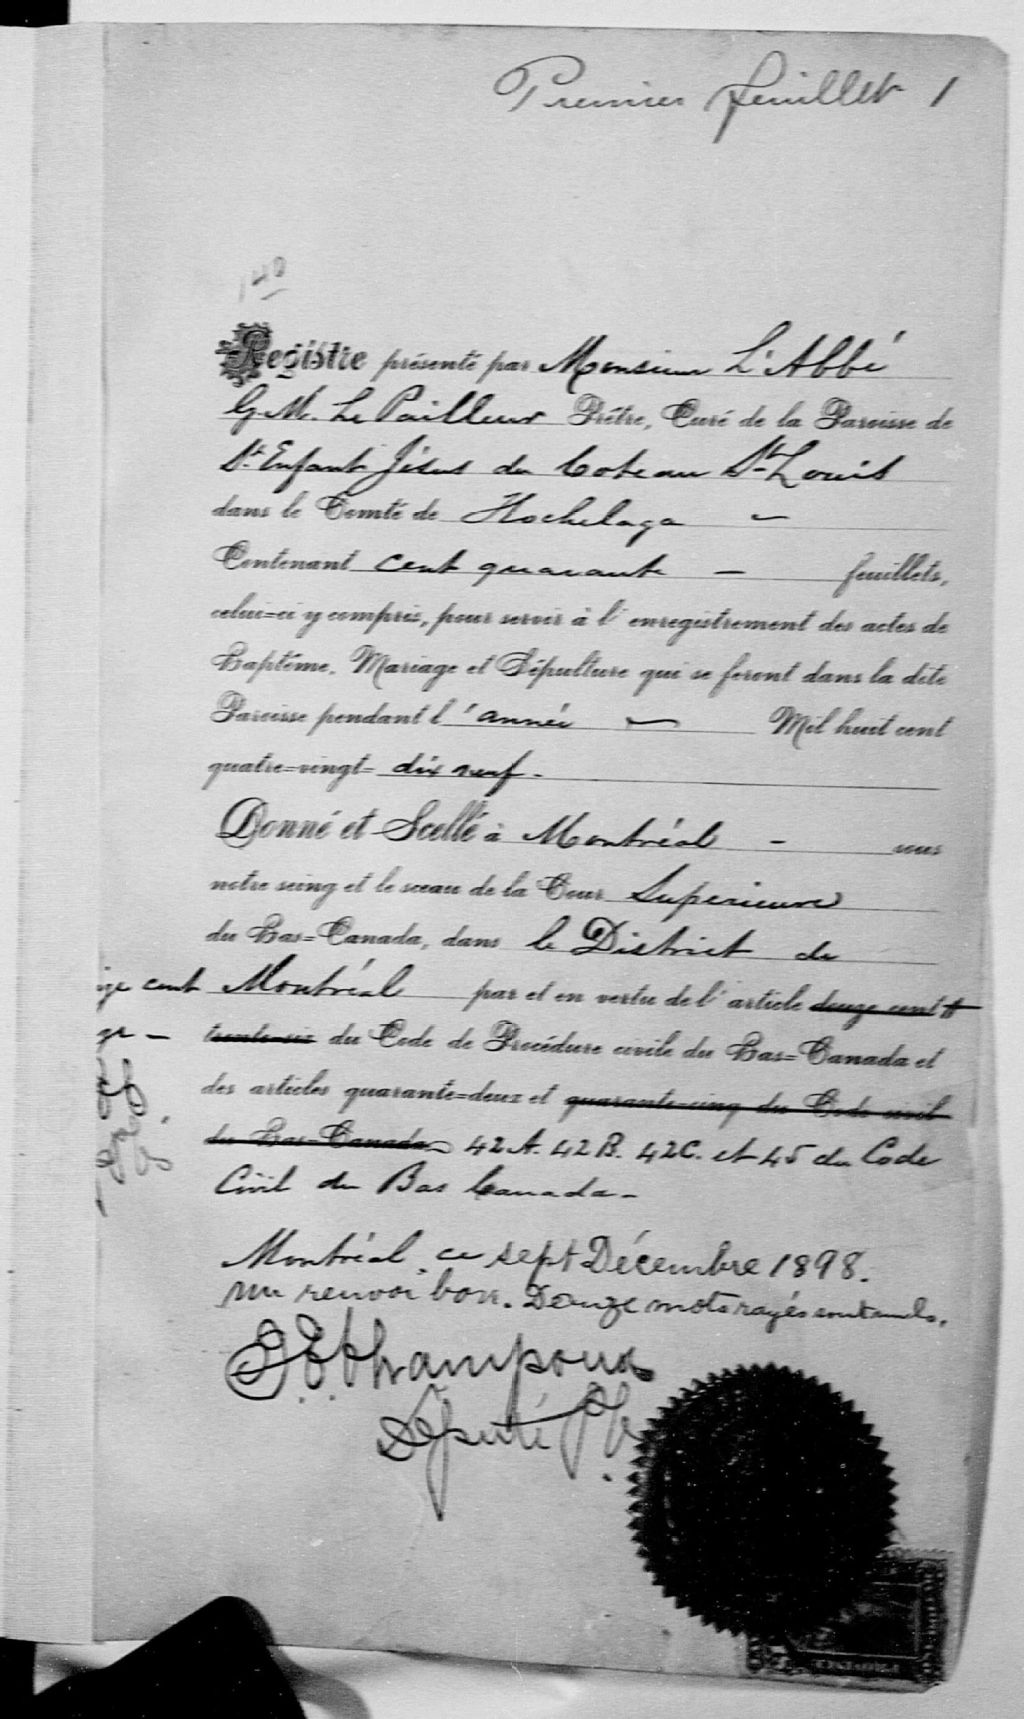 Premier feuillet 1
140
Registre présenté par Monsieur L'Abbé
G. M. Le Pailleur Prêtre, Curé de la Paroisse de
St. Enfant Jésus du Coteau St Louis
dans le Comté de Hochelaga
Contenant cent quarante feuillets,
celui=ci y compris, pour servir à l'enregistrement des actes de
Baptême, Mariage et Sépulture qui se feront dans la dite
Paroisse pendant l'année Mil huit cent
quatre=vingt= dix neuf.
Donné et Scellé à Montréal sous
notre seing et le sceau de la Cour Superieure
du Bas=Canada, dans le District de
cent Montréal par et en vertu de l'article douze cent
trente-six du Code de Procédure civile du Bas=Canada et
des articles quarante=deux et quarante-cinq du Code civil
du Bas=Canada 42 A. 42 B. 42 C. et 45 du Code
Civil du Bas Canada.
Montréal, ce sept Décembre 1898.
Un renvoi bon. Douze mots rayés sont nuls.
Champoux
Député P.